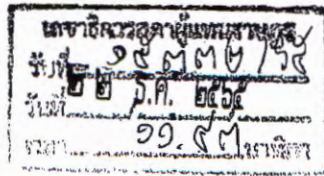 เลขาธิการสภาผู้แทนราษฎร
รับที่ ๑๕๗๓๒/๖๕
วันที่ ๒๒ ธ.ค. ๒๕๖๕
เวลา ๑๑.๔๗ นาฬิกา